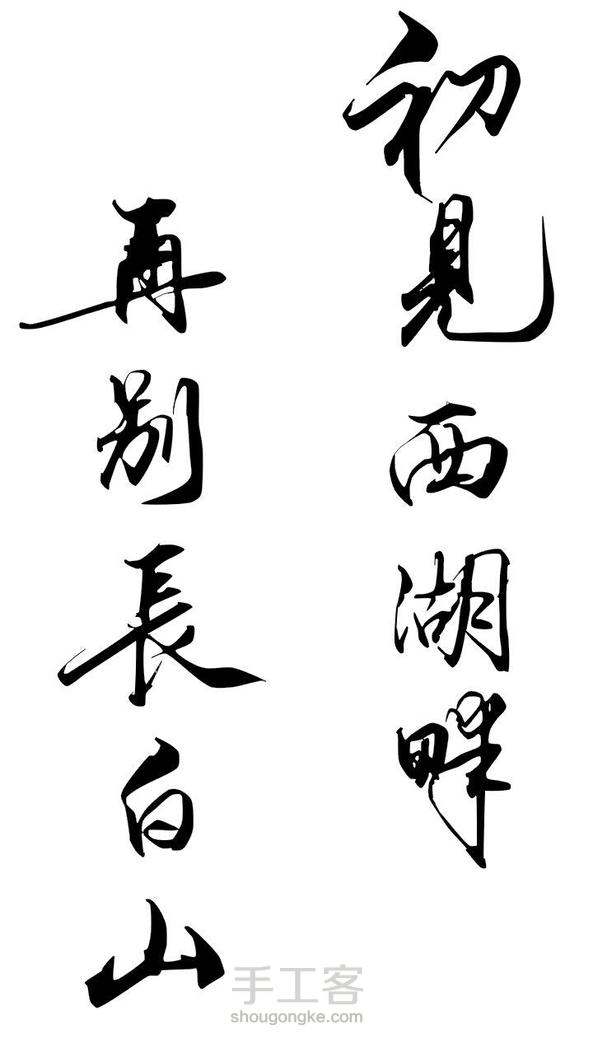 初見西湖畔
再别長白山
手工客
shougongke.com